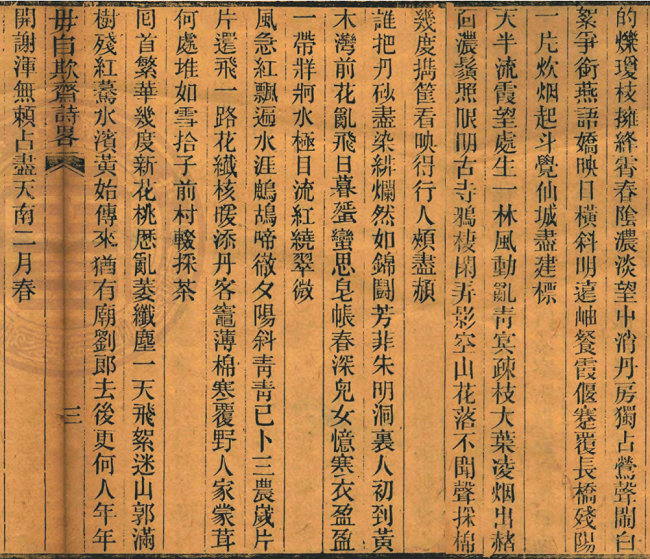 的爍瓊枝擁絳霄春陰濃淡望中消丹房獨占鶯聲閙白
絮爭銜燕語嬌映日橫斜明遠岫餐霞偃蹇覆長橋殘陽
一片炊烟起斗覺仙城盡建標
天半流霞望處生一林風動亂青冥疎枝大葉凌烟出赭
面濃鬚照眼明古寺鴉棲閑弄影空山花落不聞聲採棉
幾度擕筐看映得行人頰盡頳
誰把丹砂盡染緋爛然如錦鬬芳菲朱明洞裏人初到黃
木灣前花亂飛日暮蜑蠻思皂帳春深兒女憶寒衣盈盈
一帶牂牁水極目流紅繞翠微
風急紅飄遍水涯鷓鴣啼徹夕陽斜靑靑已卜三農歲片
片還飛一路花纖核暖添丹客竈薄棉寒覆野人家蒙茸
何處堆如雪拾子前村輟採茶
囘首繁華幾度新花桃歷亂菱纖塵一天飛絮迷山郭滿
樹殘紅驀水濱黃姑傳來猶有廟劉郎去後更何人年年
毋自欺齋詩畧
三
開謝渾無賴占盡天南二月春